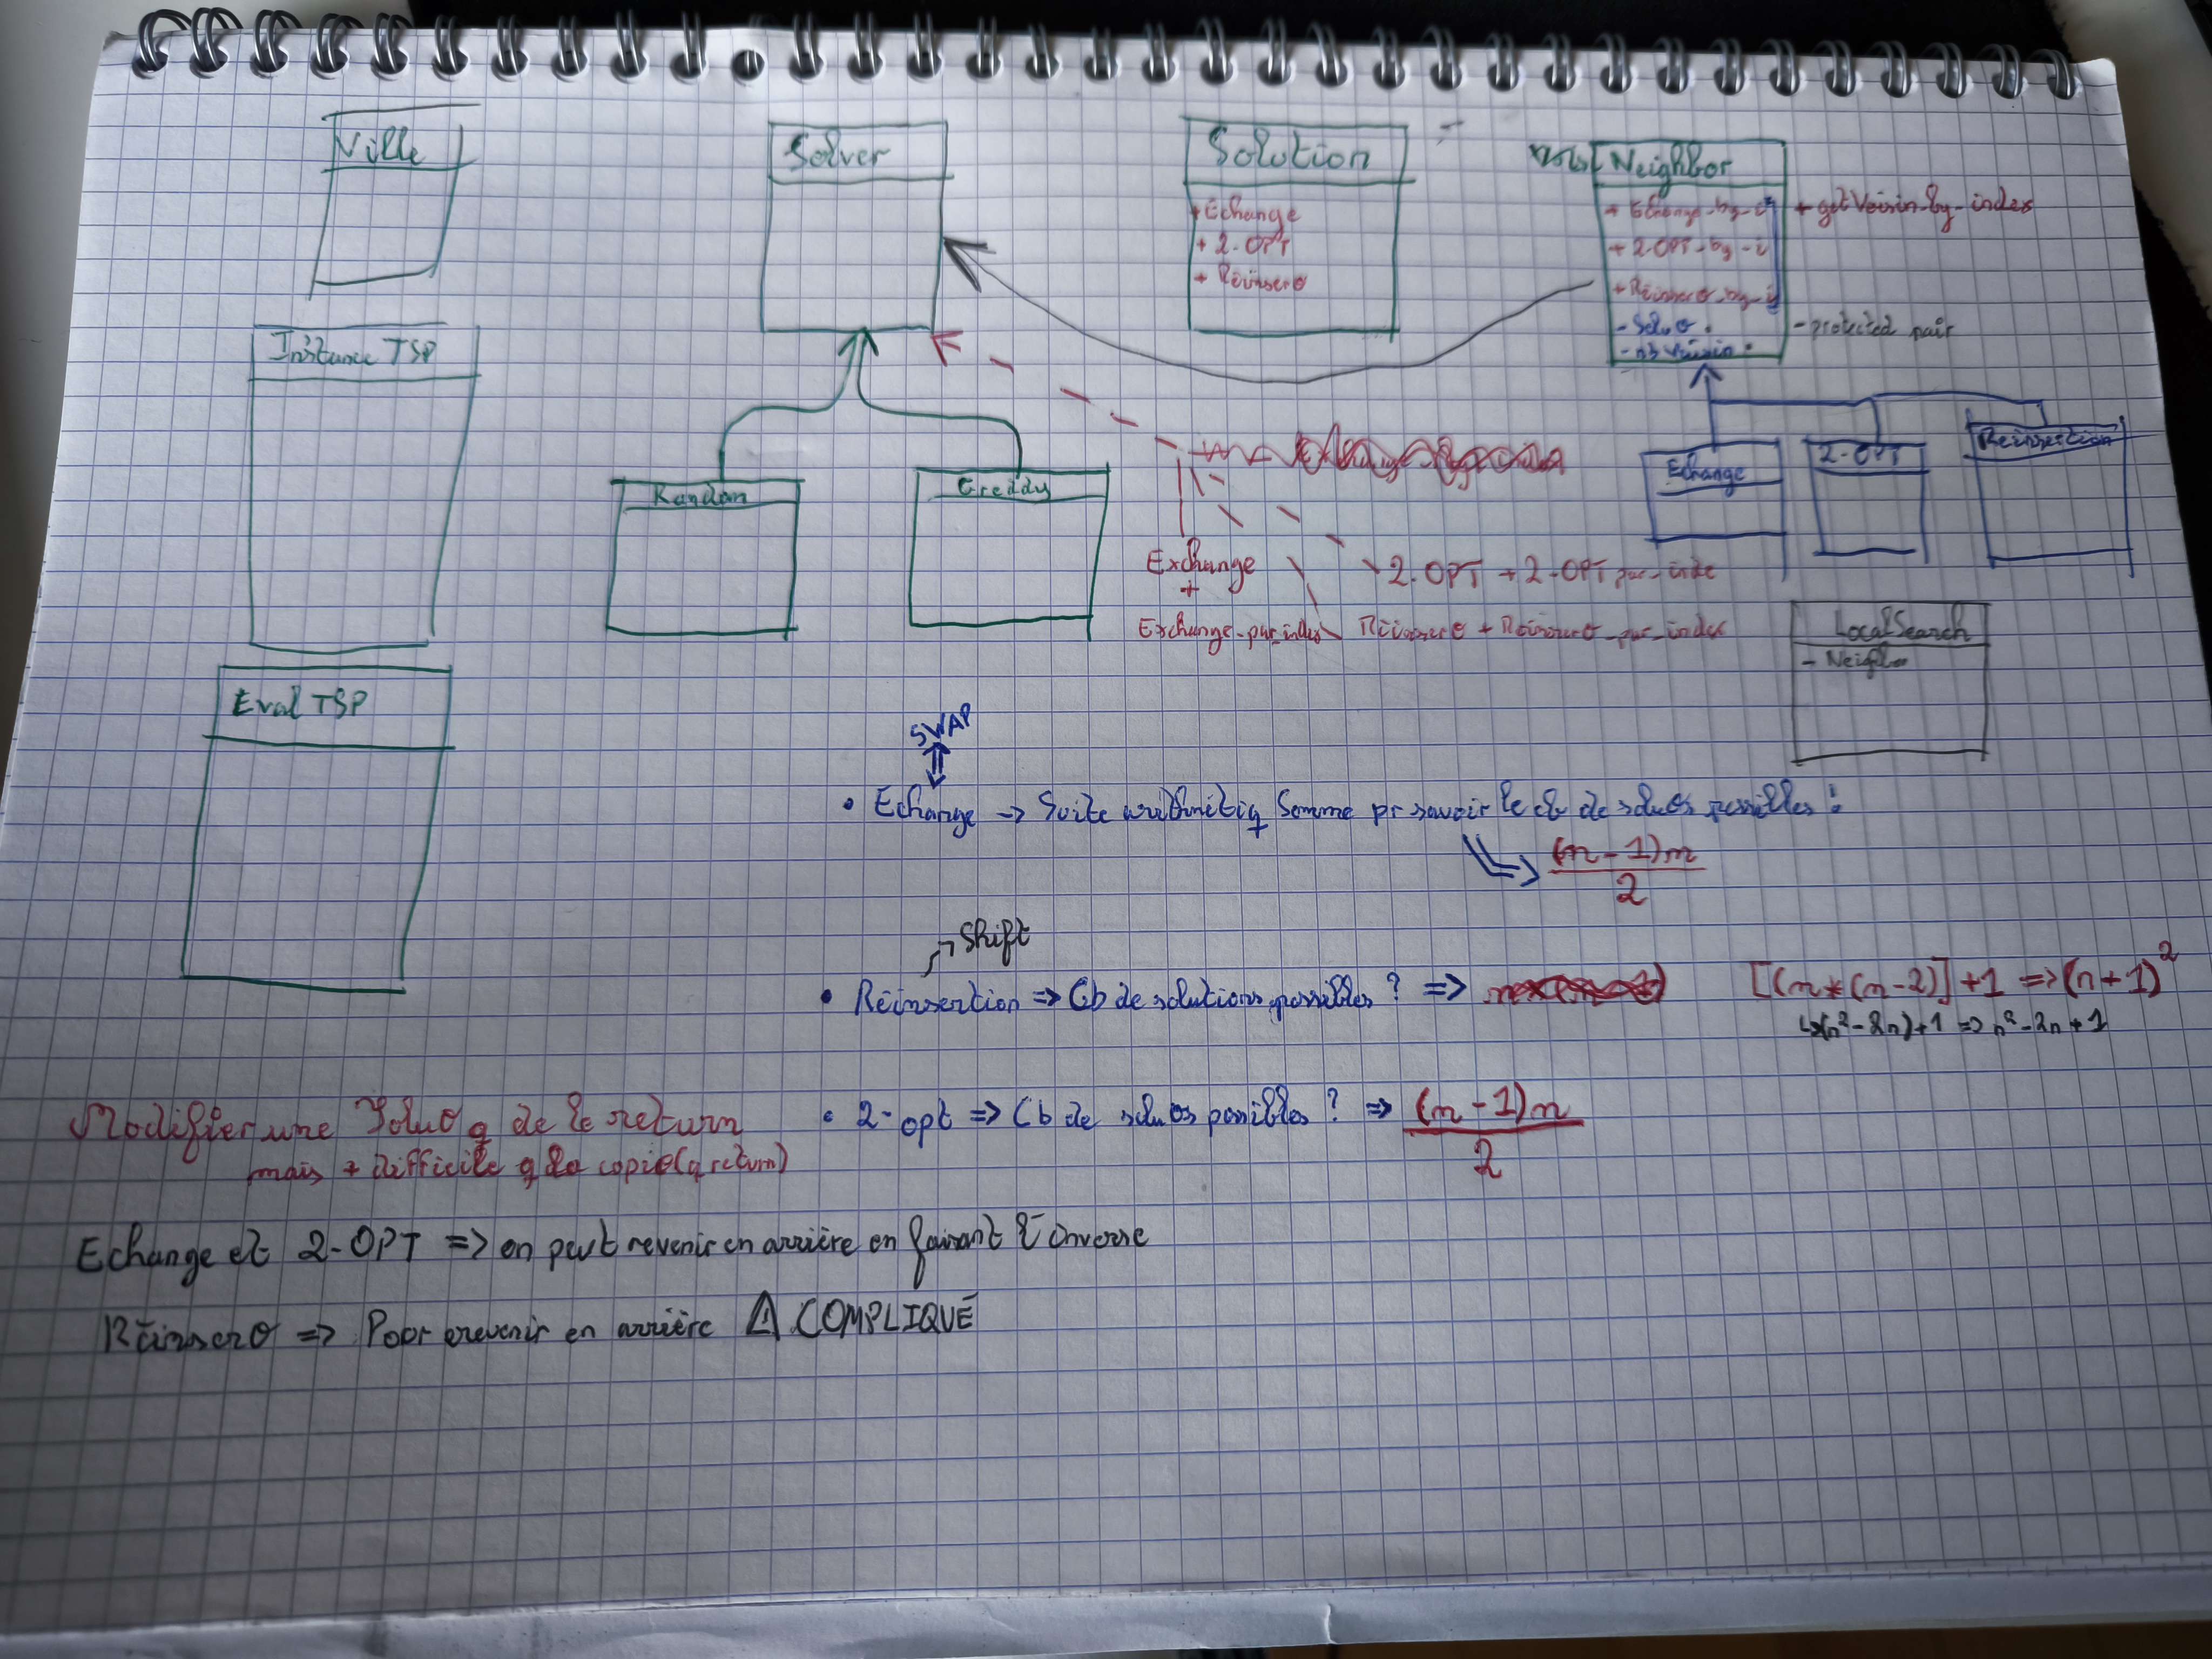 Ville
Solver
Solution
Neighbor
+ Echange
+ 2-OPT
+ Réinserø
+ Echange_by_i
+ 2-OPT_by_i
+ Réinserø_by_i
- Soluø
- nb voisin
+ getVoisin_by_index
- protected pair
Instance TSP
Random
Greddy
Echange
2-OPT
Réinsertion
Exchange
+
Exchange_par_index
2-OPT + 2-OPT par_inde
Réinserø + Réinserø_par_index
LocalSearch
- Neighbo
Eval TSP
SWAP
• Echange -> Suite arithmétiq Somme pr savoir le cb de soluøs possibles :
(n-1)n
2
Shift
• Réinsertion => Cb de solutions possibles ? =>
[(n*(n-2)]+1 => (n+1)²
↳(n²-2n)+1 => n²-2n+1
Modifier une Soluø q de le return
mais + difficile q la copie (q return)
• 2-opt => Cb de soluøs possibles ? => (n-1)n
2
Echange et 2-OPT => on peut revenir en arrière en faisant l'inverse
Réinserø => Pour revenir en arrière ⚠ COMPLIQUÉ